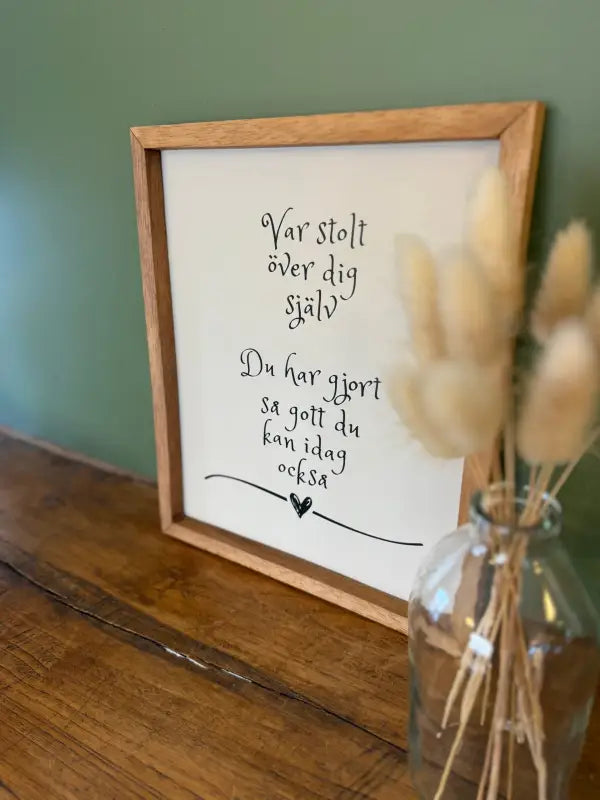 Var stolt
över dig
själv
Du har gjort
så gott du
kan idag
också